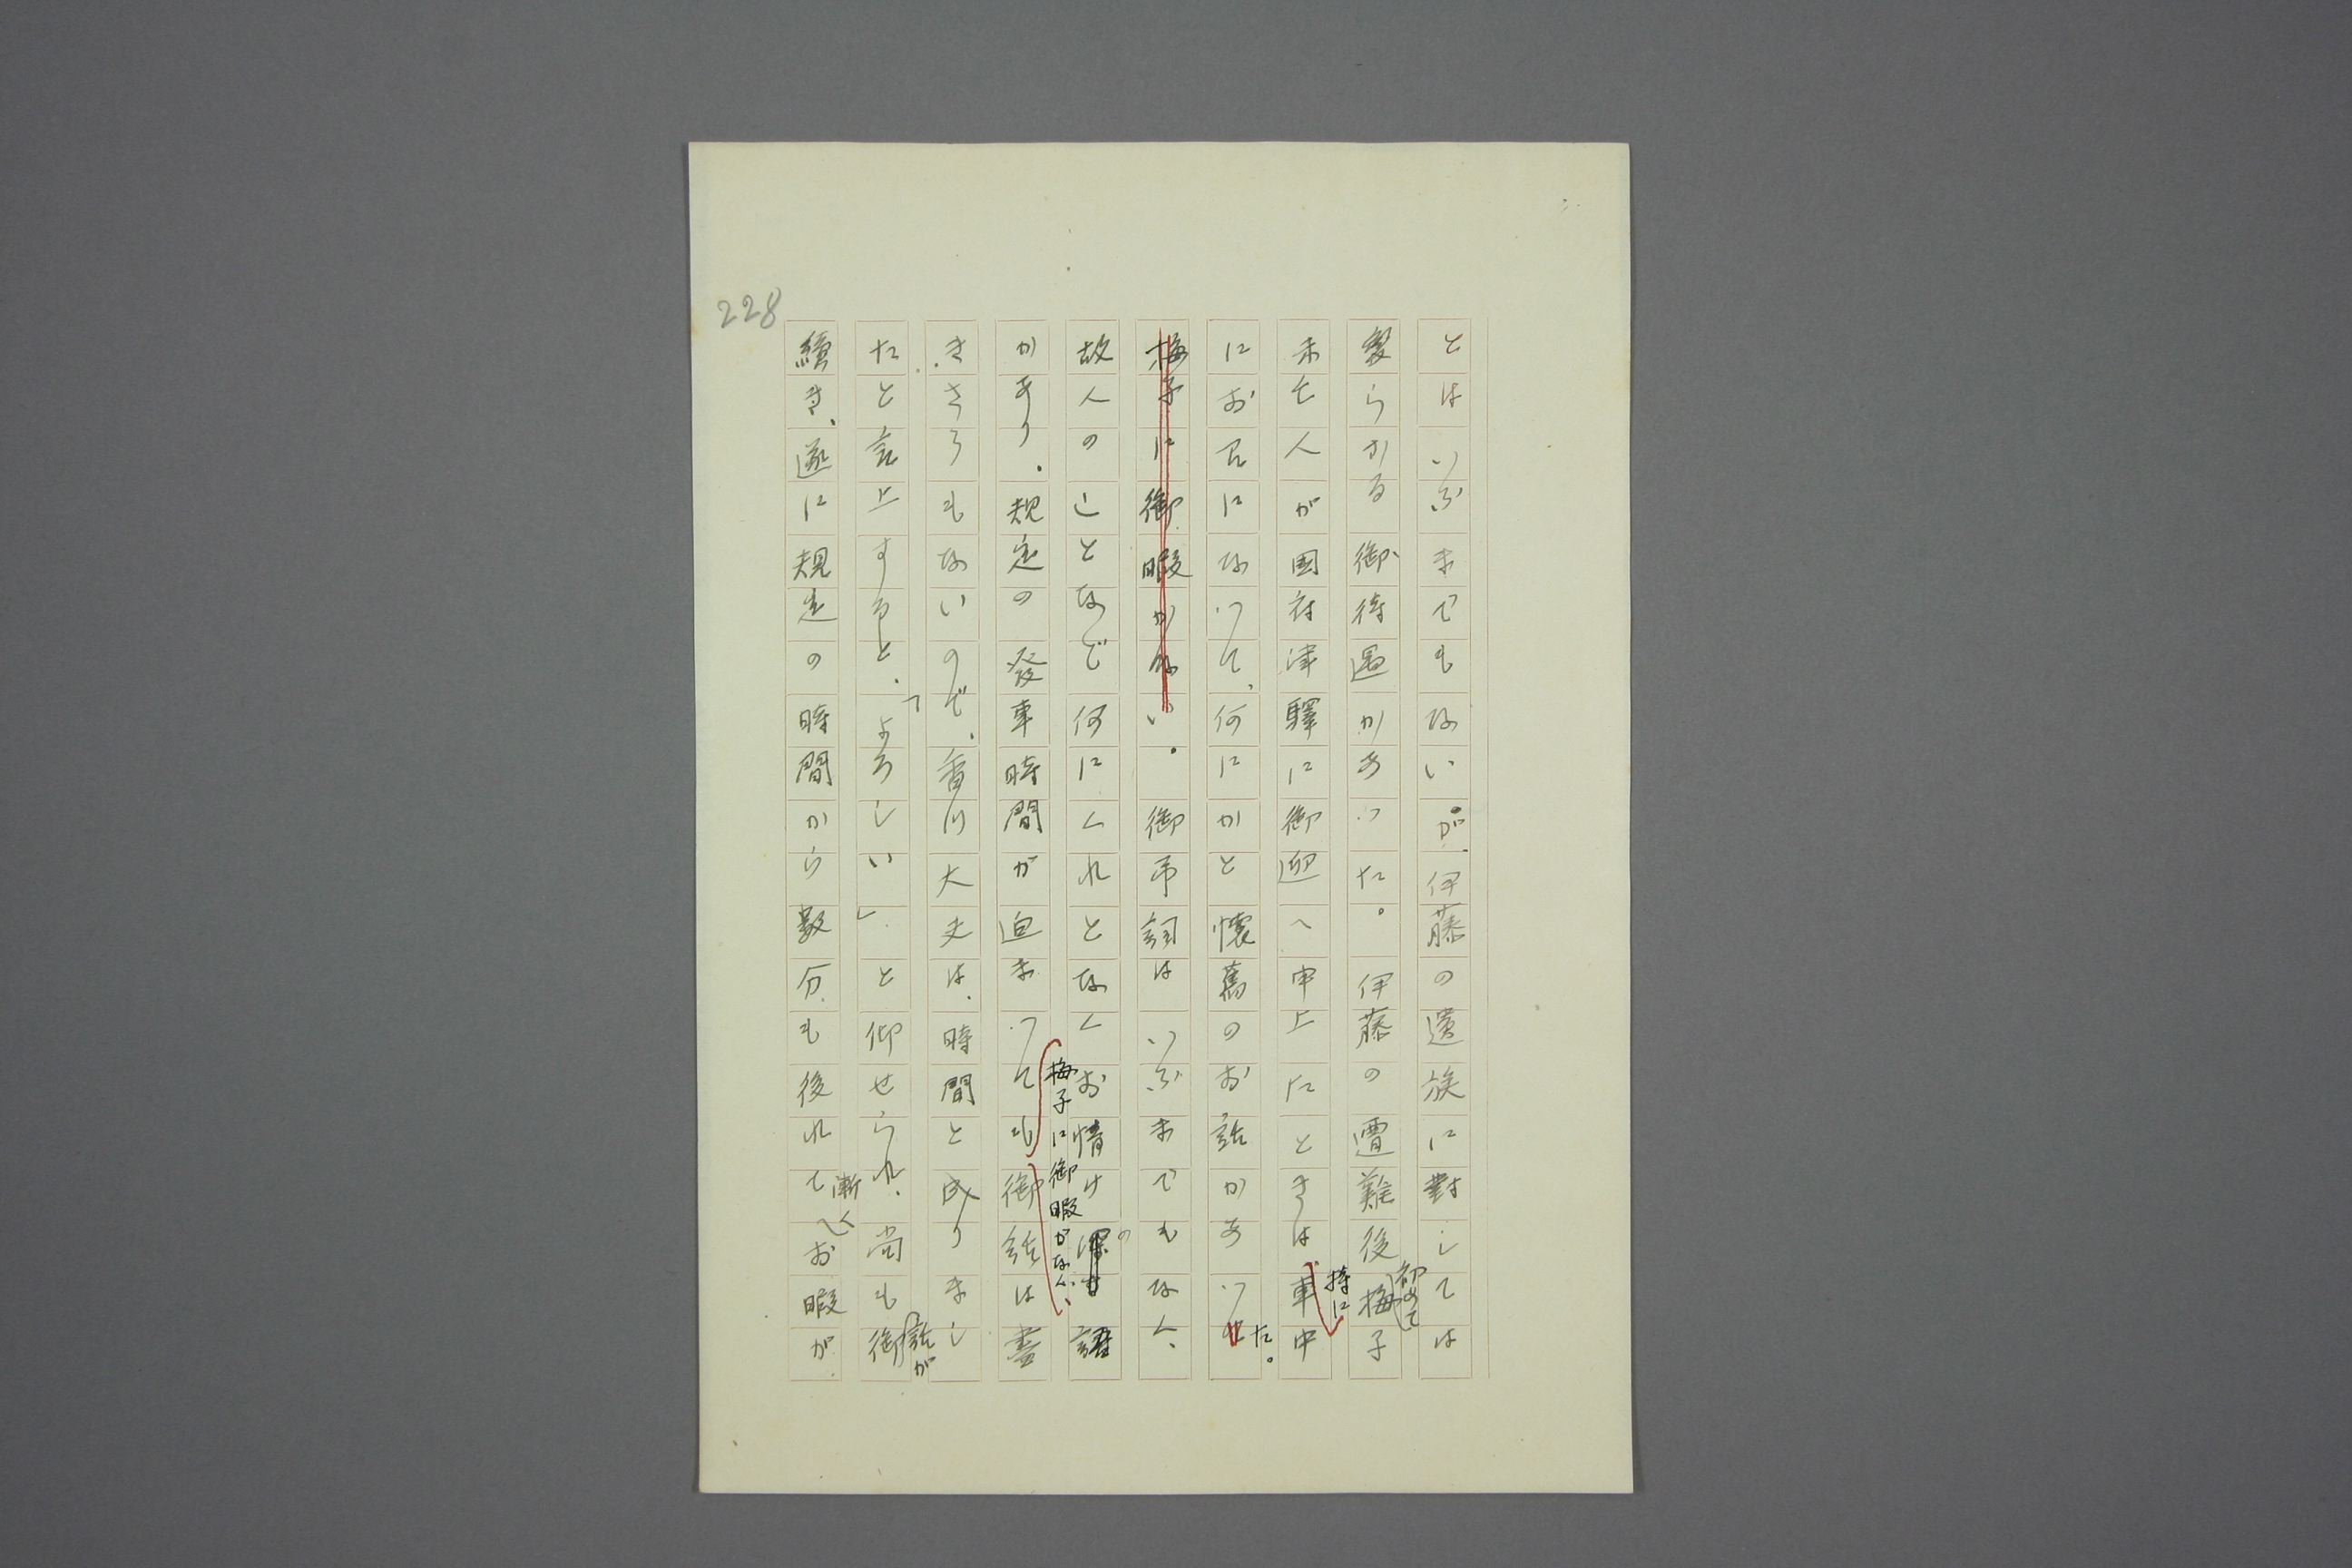 228
とはいふまでもないが、伊藤の遺族に對しては
変らかる御待遇かあつた。伊藤の遭難後初めて梅子
未亡人が国府津驛に御迎へ申上たときは特に車中
にお召になつて、何にかと懐舊のお話かあつた。
梅子に御暇かない。御弔詞はいふまでもなく、
故人のことなど何にくれとなくお情けの
語
かあり、規定の發車時間が迫まつても梅子に御暇がない、御話は盡
きさうもないので、香川大夫は、時間と成りまし
たと言上すると、「よろしい」と仰せられ、尚も御話が
續き、遂に規定の時間から數分も後れて漸くお暇が